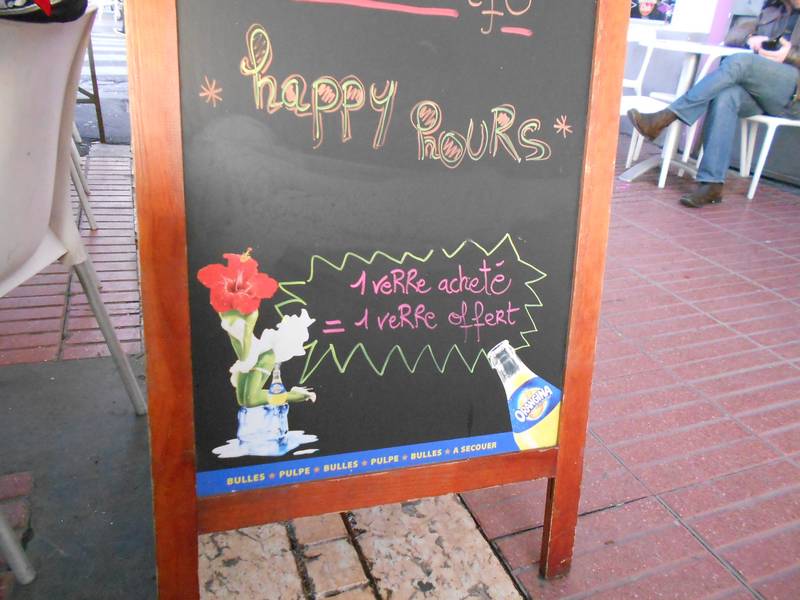 happy
hours
1 verre acheté
= 1 verre offert
ORANGINA
BULLES * PULPE * BULLES * PULPE * BULLES * A SECOUER